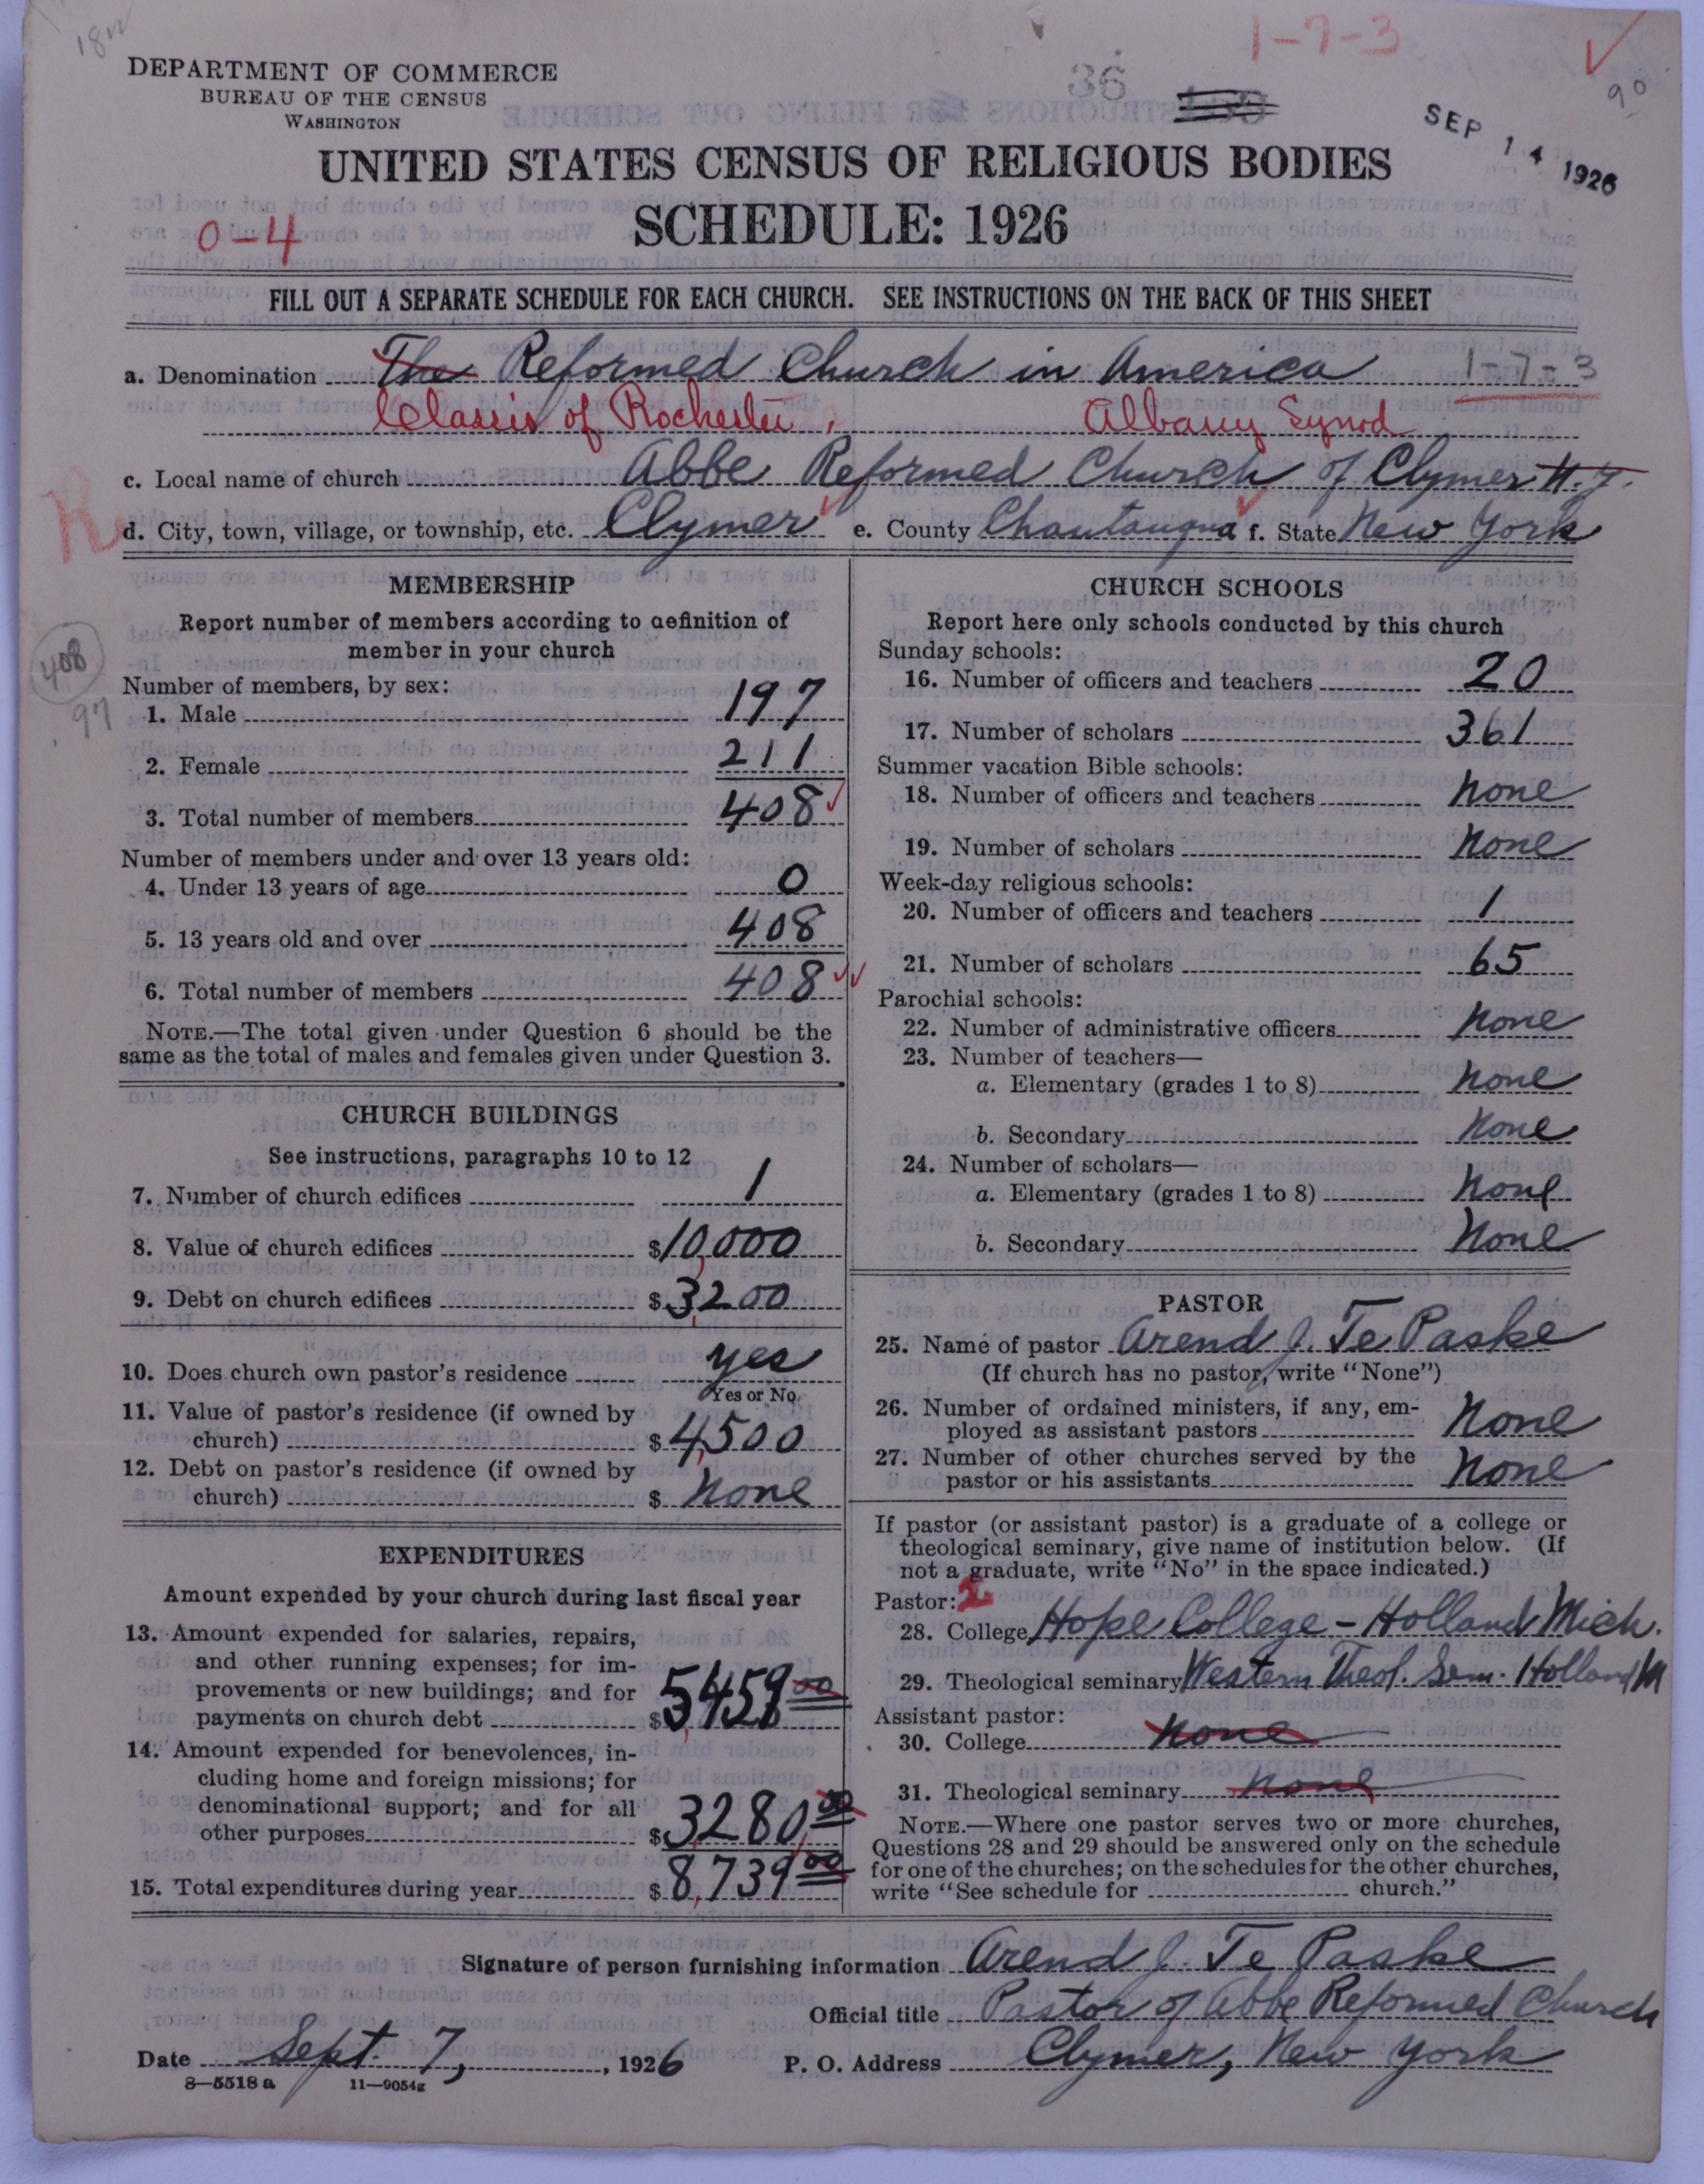 18w
1-7-3
DEPARTMENT OF COMMERCE
BUREAU OF THE CENSUS
WASHINGTON
36
90
SEP 14 1926
UNITED STATES CENSUS OF RELIGIOUS BODIES
SCHEDULE: 1926
0-4
FILL OUT A SEPARATE SCHEDULE FOR EACH CHURCH. SEE INSTRUCTIONS ON THE BACK OF THIS SHEET
a. Denomination The Reformed Church in America 1-7-3
Classis of Rochester, Albany Synod
c. Local name of church Abbe Reformed Church of Clymer N.Y.
R
d. City, town, village, or township, etc. Clymer e. County Chautauqua f. State New York
MEMBERSHIP
Report number of members according to definition of
member in your church
408
97
Number of members, by sex:
1. Male 197
2. Female 211
3. Total number of members 408
Number of members under and over 13 years old:
4. Under 13 years of age 0
5. 13 years old and over 408
6. Total number of members 408
NOTE.—The total given under Question 6 should be the
same as the total of males and females given under Question 3.
CHURCH BUILDINGS
See instructions, paragraphs 10 to 12
7. Number of church edifices 1
8. Value of church edifices $10,000
9. Debt on church edifices $3,200
10. Does church own pastor's residence yes
Yes or No
11. Value of pastor's residence (if owned by
church) $4,500
12. Debt on pastor's residence (if owned by
church) $ None
EXPENDITURES
Amount expended by your church during last fiscal year
13. Amount expended for salaries, repairs,
and other running expenses; for im-
provements or new buildings; and for
payments on church debt $5,459 00
14. Amount expended for benevolences, in-
cluding home and foreign missions; for
denominational support; and for all
other purposes $3,280.00
15. Total expenditures during year $8,739 00
CHURCH SCHOOLS
Report here only schools conducted by this church
Sunday schools:
16. Number of officers and teachers 20
17. Number of scholars 361
Summer vacation Bible schools:
18. Number of officers and teachers None
19. Number of scholars None
Week-day religious schools:
20. Number of officers and teachers 1
21. Number of scholars 65
Parochial schools:
22. Number of administrative officers None
23. Number of teachers—
a. Elementary (grades 1 to 8) None
b. Secondary None
24. Number of scholars—
a. Elementary (grades 1 to 8) None
b. Secondary None
PASTOR
25. Name of pastor Arend J. Te Paske
(If church has no pastor, write "None")
26. Number of ordained ministers, if any, em-
ployed as assistant pastors None
27. Number of other churches served by the
pastor or his assistants None
If pastor (or assistant pastor) is a graduate of a college or
theological seminary, give name of institution below. (If
not a graduate, write "No" in the space indicated.)
Pastor: 2
28. College Hope College - Holland Mich.
29. Theological seminary Western Theol. Sem. Holland M
Assistant pastor:
30. College None
31. Theological seminary None
NOTE.—Where one pastor serves two or more churches,
Questions 28 and 29 should be answered only on the schedule
for one of the churches; on the schedules for the other churches,
write "See schedule for church."
Signature of person furnishing information Arend J. Te Paske
Official title Pastor of Abbe Reformed Church
Date Sept. 7, 1926 P. O. Address Clymer, New York
8—5518 a 11—9054g